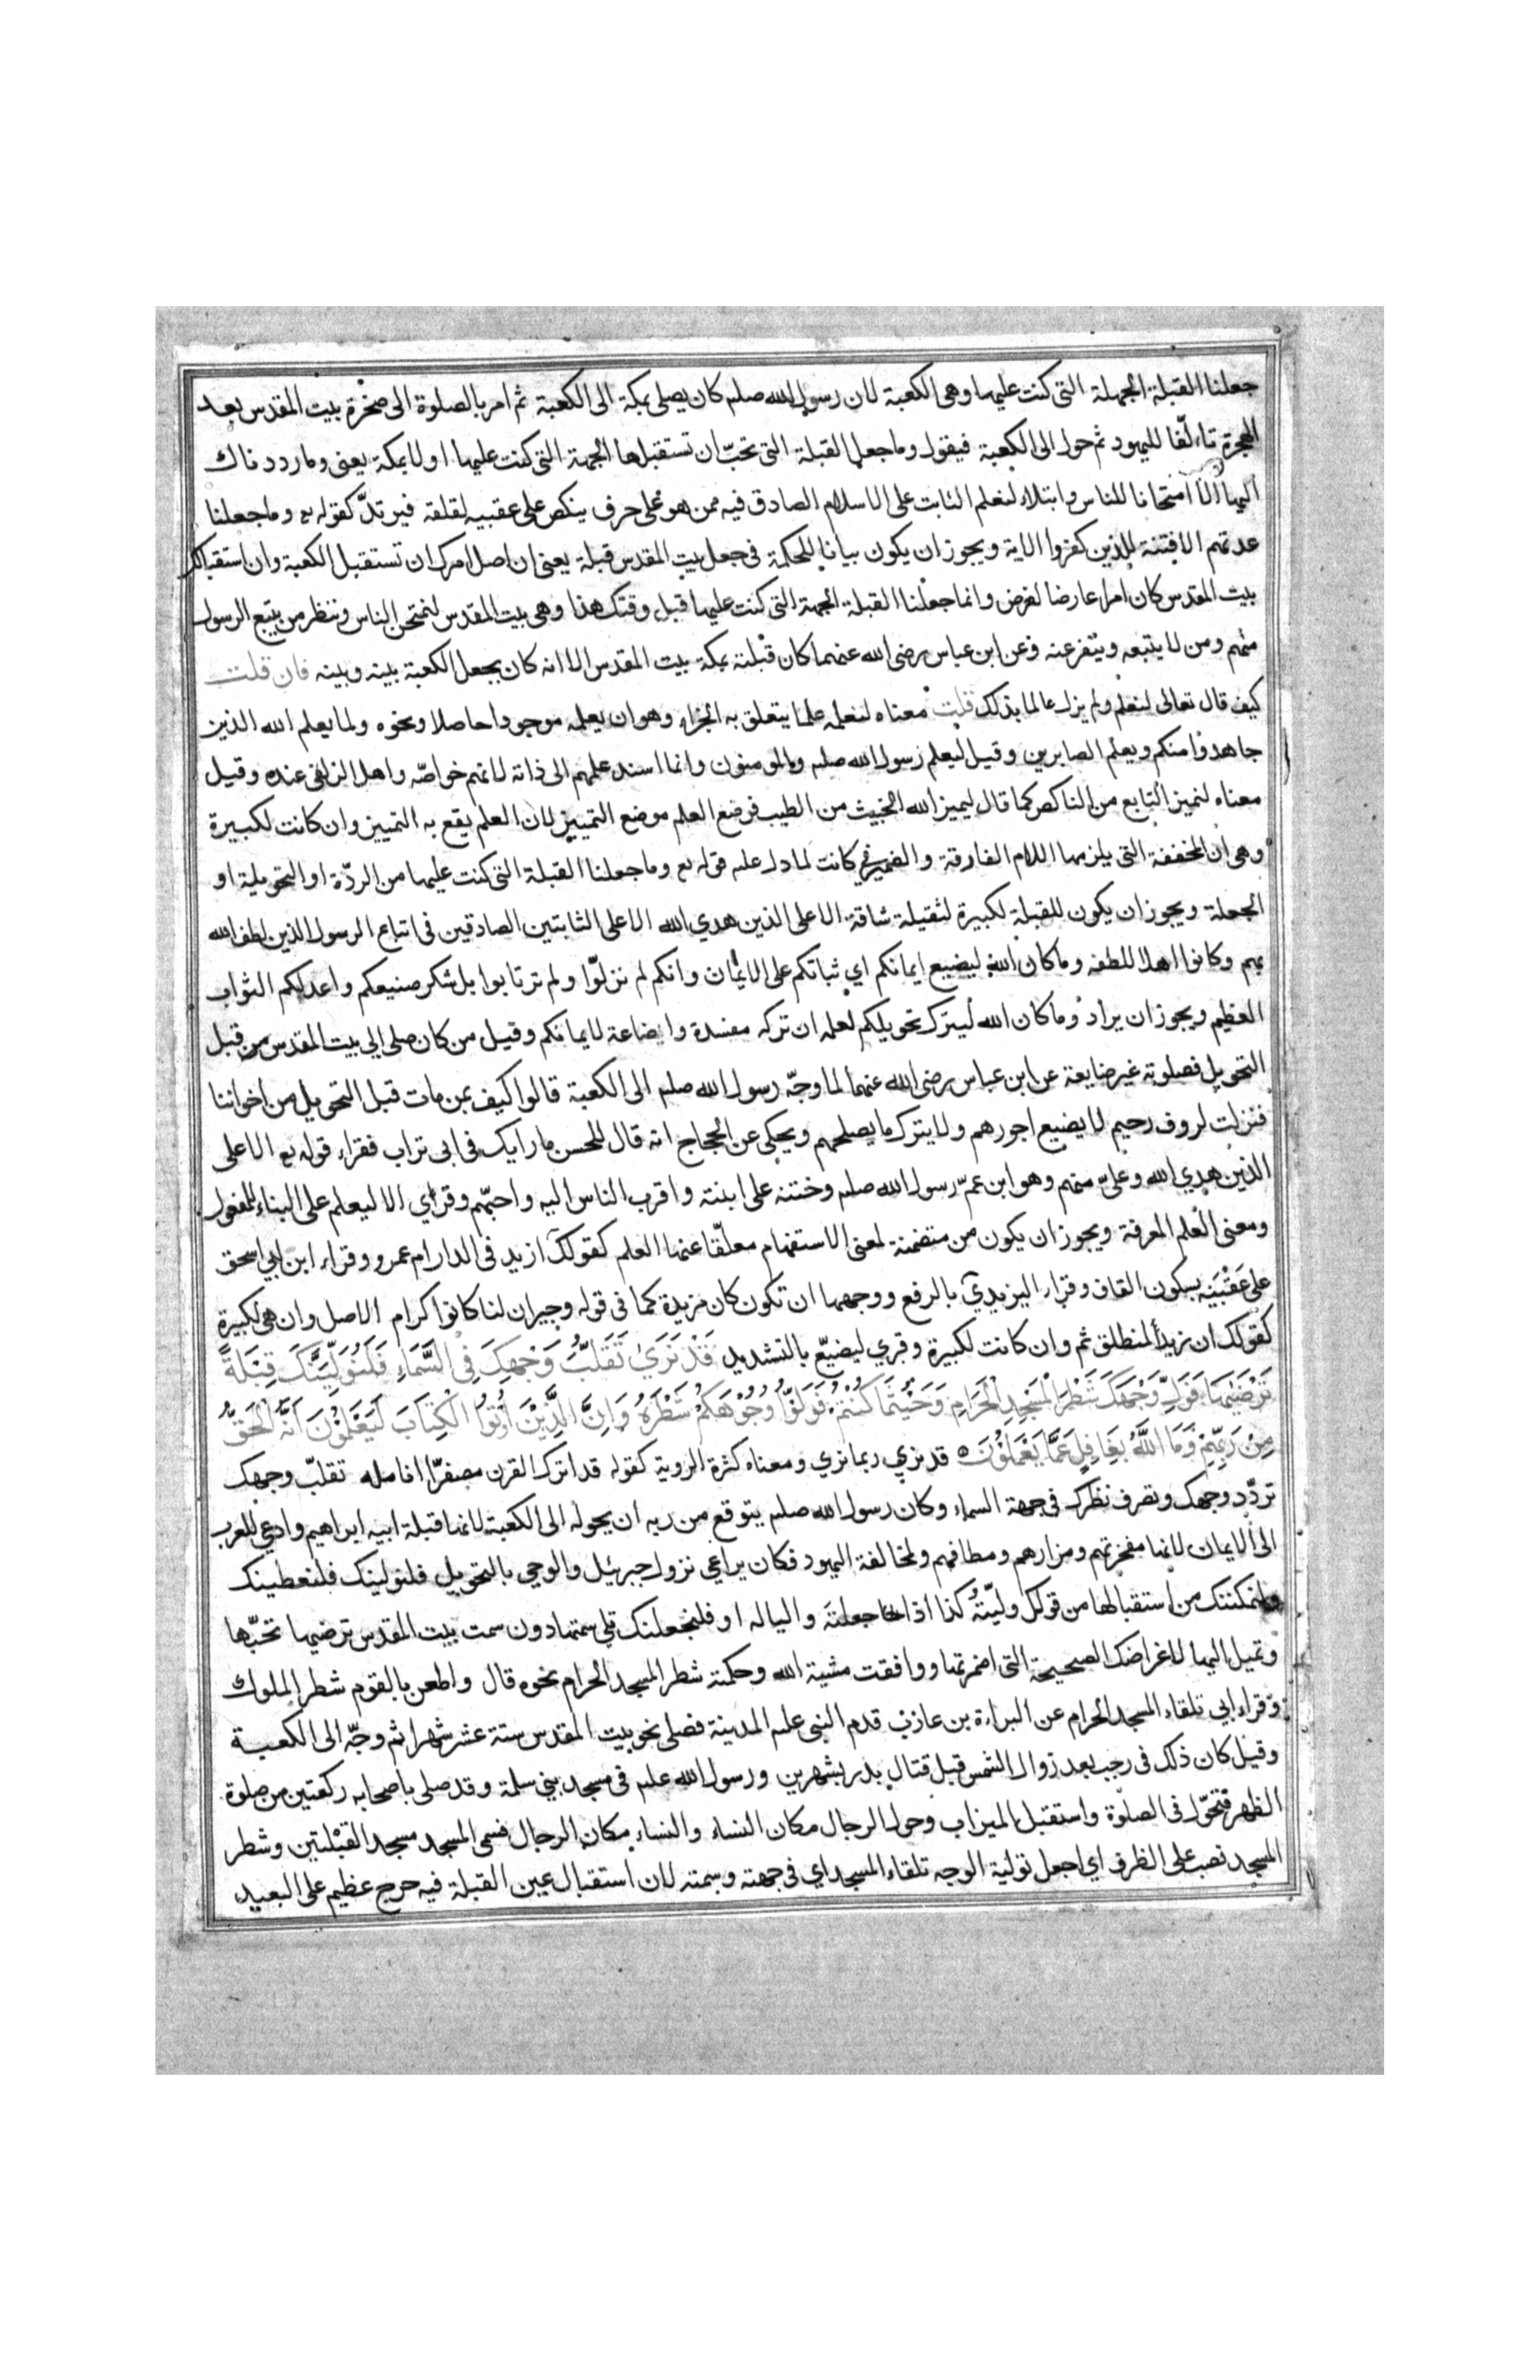 جعلنا القبلة الجهلة التى كنت عليها وهى الكعبة لان رسول الله صلم كان يصلى بمكة الى الكعبة ثم امر بالصلوة الى صخرة بيت المقدس بعد
الهجرة تاءلّفا لليهود ثم حول الى الكعبة فيقول وما جعل القبلة التى تحبّ ان تستقبلها الجهة التى كنت عليها اولا بمكة يعنى وما رددناك
اليها الّا امتحانا للناس وابتلاء لنعلم الثابت على الاسلام الصادق فيه ممن هو على حرف ينكص على عقبيه لقلقه فيرتدّ كقوله تع وما جعلنا
عدتهم الا فتنة للذين كفروا الاية ويجوز ان يكون بيانا للحكمة فى جعل بيت المقدس قبلة يعنى ان اصل امرك ان تستقبل الكعبة وان استقبالك
بيت المقدس كان امرا عارضا لغرض وانما جعلنا القبلة الجهة التى كنت عليها قبل وقتك هذا وهى بيت المقدس لنمتحن الناس وننظر من يتبع الرسول
منهم ومن لا يتبعه وينفر عنه وعن ابن عباس رضى الله عنهما كان قبلته بمكة بيت المقدس الا انه كان يجعل الكعبة بينه وبينه فان قلت
كيف قال تعالى لنعلم ولم يزل عالما بذلك قلت معناه لنعلمه علما يتعلق به الجزاء وهو ان يعلمه موجودا حاصلا ونحوه ولما يعلم الله الذين
جاهدوا منكم ويعلم الصابرين وقيل ليعلم رسول الله صلم والمومنون وانما اسند علمهم الى ذاته لانهم خواصّه واهل الزلفى عنده وقيل
معناه لنميز التابع من الناكص كما قال ليميز الله الخبيث من الطيب فوضع العلم موضع التمييز لان العلم يقع به التمييز وان كانت لكبيرة
وهى ان المخففة التى يلزمها اللام الفارقة والضمير فى كانت لما دل عليه قوله تع وما جعلنا القبلة التى كنت عليها من الردّة او التحويلة او
الجعلة ويجوز ان يكون للقبلة لكبيرة لثقيلة شاقة الا على الذين هدي الله الا على الثابتين الصادقين فى اتباع الرسول الذين لطف الله
بهم وكانوا اهلا للطفه وما كان الله ليضيع ايمانكم اي ثباتكم على الايمان وانكم لم تزلّوا ولم ترتابوا بل شكر صنيعكم واعد لكم الثواب
العظيم ويجوز ان يراد وما كان الله ليترك تحويلكم لعلمه ان تركه مفسدة واضاعة لايمانكم وقيل من كان صلى الى بيت المقدس من قبل
التحويل فصلوته غير ضايعة عن ابن عباس رضى الله عنهما لما وجّه رسول الله صلم الى الكعبة قالوا كيف بمن مات قبل التحويل من اخواننا
فنزلت لروف رحيم لا يضيع اجورهم ولا يترك ما يصلحهم ويحكى عن الحجاج انه قال للحسن ما رايك فى ابى تراب فقراء قوله تع الا على
الذين هدي الله وعليّ منهم وهو ابن عمّ رسول الله صلم وختنه على ابنته واقرب الناس اليه واحبّهم وقراي الا ليعلم على البناء للمفعول
ومعنى العلم المعرفة ويجوز ان يكون من متضمنة لمعنى الاستفهام معلّقا عنها العلم كقولك ازيد فى الدار ام عمرو وقراء ابن ابي اسحق
على عَقْبَيْه بسكون القاف وقراء اليزيديّ بالرفع ووجهها ان تكون كان مزيدة كما فى قوله وجيران لنا كانوا كرام الاصل وان هى لكبيرة
كقولك ان زيد لمنطلق ثم وان كانت لكبيرة وقري ليضيّع بالتشديد قَدْ نَرَىٰ تَقَلُّبَ وَجْهِكَ فِى السَّمَاءِ فَلَنُوَلِّيَنَّكَ قِبْلَةً
تَرْضَيٰهَا فَوَلِّ وَجْهَكَ شَطْرَ الْمَسْجِدِ الْحَرَامِ وَحَيْثُمَا كُنْتُمْ فَوَلُّوا وُجُوْهَكُمْ شَطْرَهُ وَاِنَّ الَّذِيْنَ اُوْتُوا الْكِتَابَ لَيَعْلَمُوْنَ اَنَّهُ الْحَقُّ
مِنْ رَبِّهِمْ وَمَا اللَّهُ بِغَافِلٍ عَمَّا يَعْمَلُوْنَ ه قد نري ربما نري ومعناه كثرة الروية كقوله قد اترك القرن مصفرّا انامله تقلّب وجهك
تردّد وجهك وتصرف نظرك فى جهة السماء وكان رسول الله صلم يتوقع من ربه ان يحوله الى الكعبة لانها قبلة ابيه ابراهيم وادعي للعرب
الى الايمان لانها مفخرتهم ومزارهم ومطافهم ولمخالفة اليهود فكان يراعي نزول جبرئيل والوحي بالتحويل فلنولينك فلنعطينك
ولنمكننك من استقبالها من قولك وليّتهُ كذا اذا جعلتَه واليا له او فلنجعلنك تلى سمتها دون سمت بيت المقدس ترضيها تحبّها
وتميل اليها لاغراضك الصحيحة التى اضمرتها ووافقت مشية الله وحكمته شطر المسجد الحرام نحوه قال واطعن بالقوم شطر الملوك
وقراء ابي تلقاء المسجد الحرام عن البراءة بن عازب قدم النبى علم المدينة فصلى نحو بيت المقدس ستة عشر شهرا ثم وجّه الى الكعبة
وقيل كان ذلك فى رجب بعد زوال الشمس قبل قتال بدر بشهرين ورسول الله علم فى مسجد بني سلمة وقد صلى باصحابه ركعتين من صلوة
الظهر فتحوّل فى الصلوة واستقبل الميزاب وحول الرجال مكان النساء والنساء مكان الرجال فسمى المسجد مسجد القبلتين وشطر
المسجد نصب على الظرف اي اجعل تولية الوجه تلقاء المسجد اي فى جهته وسمته لان استقبال عين القبلة فيه حرج عظيم على البعيد